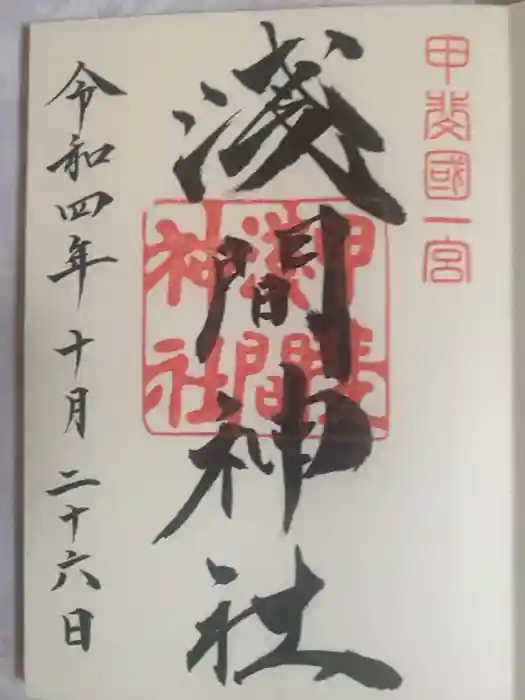 甲斐國一宮
淺間神社
甲斐
淺間
神社
令和四年十月二十六日